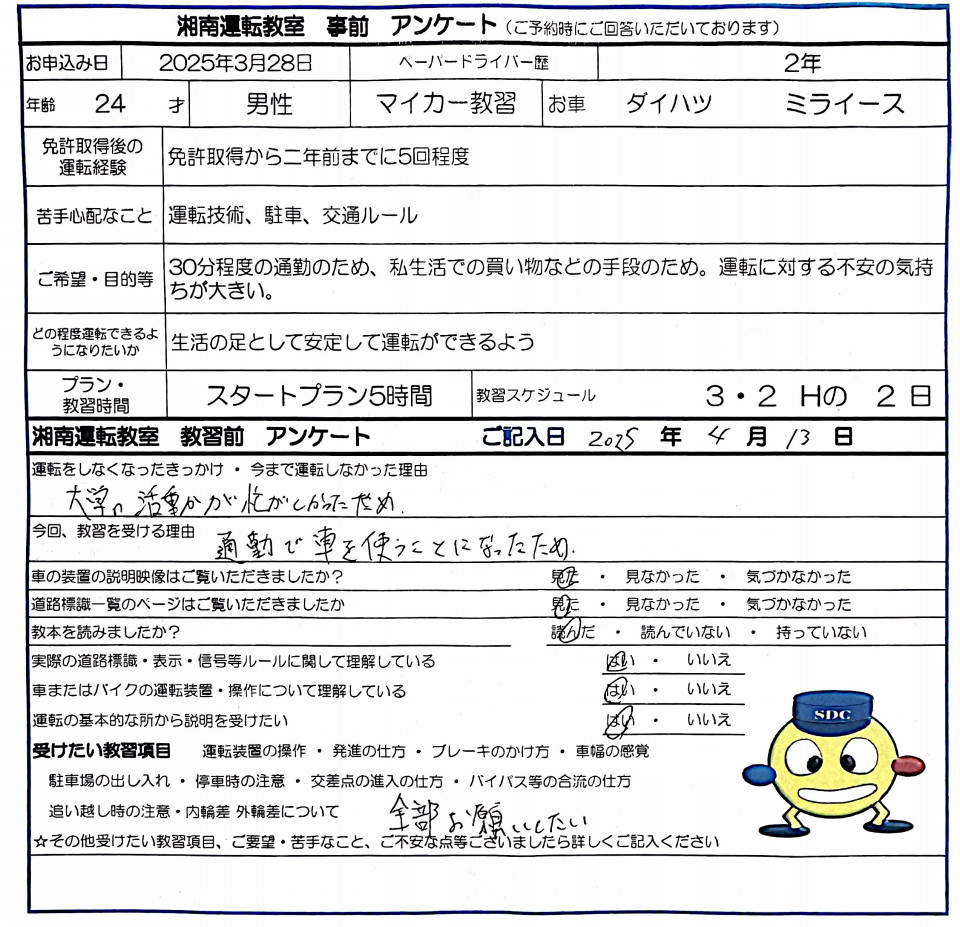 湘南運転教室 事前 アンケート(ご予約時にご回答いただいております)
お申込み日 2025年3月28日 ペーパードライバー歴 2年
年齢 24 才 男性 マイカー教習 お車 ダイハツ ミライース
免許取得後の
運転経験
免許取得から二年前までに5回程度
苦手心配なこと 運転技術、駐車、交通ルール
ご希望・目的等
30分程度の通勤のため、私生活での買い物などの手段のため。運転に対する不安の気持
ちが大きい。
どの程度運転できるよ
うになりたいか
生活の足として安定して運転ができるよう
プラン・
教習時間
スタートプラン5時間 教習スケジュール 3・2 Hの 2日
湘南運転教室 教習前 アンケート ご記入日 2025 年 4 月 13 日
運転をしなくなったきっかけ ・ 今まで運転しなかった理由
大学の活動が忙がしかったため.
今回、教習を受ける理由 通勤で車を使うことになったため.
車の装置の説明映像はご覧いただきましたか? 見た ・ 見なかった ・ 気づかなかった
道路標識一覧のページはご覧いただきましたか 見た ・ 見なかった ・ 気づかなかった
教本を読みましたか? 読んだ ・ 読んでいない ・ 持っていない
実際の道路標識・表示・信号等ルールに関して理解している はい ・ いいえ
車またはバイクの運転装置・操作について理解している はい ・ いいえ
運転の基本的な所から説明を受けたい はい ・ いいえ
SDC
受けたい教習項目 運転装置の操作 ・ 発進の仕方 ・ ブレーキのかけ方 ・ 車幅の感覚
駐車場の出し入れ ・ 停車時の注意 ・ 交差点の進入の仕方 ・ バイパス等の合流の仕方
追い越し時の注意・内輪差 外輪差について 全部お願いしたい
☆その他受けたい教習項目、ご要望・苦手なこと、ご不安な点等ございましたら詳しくご記入ください